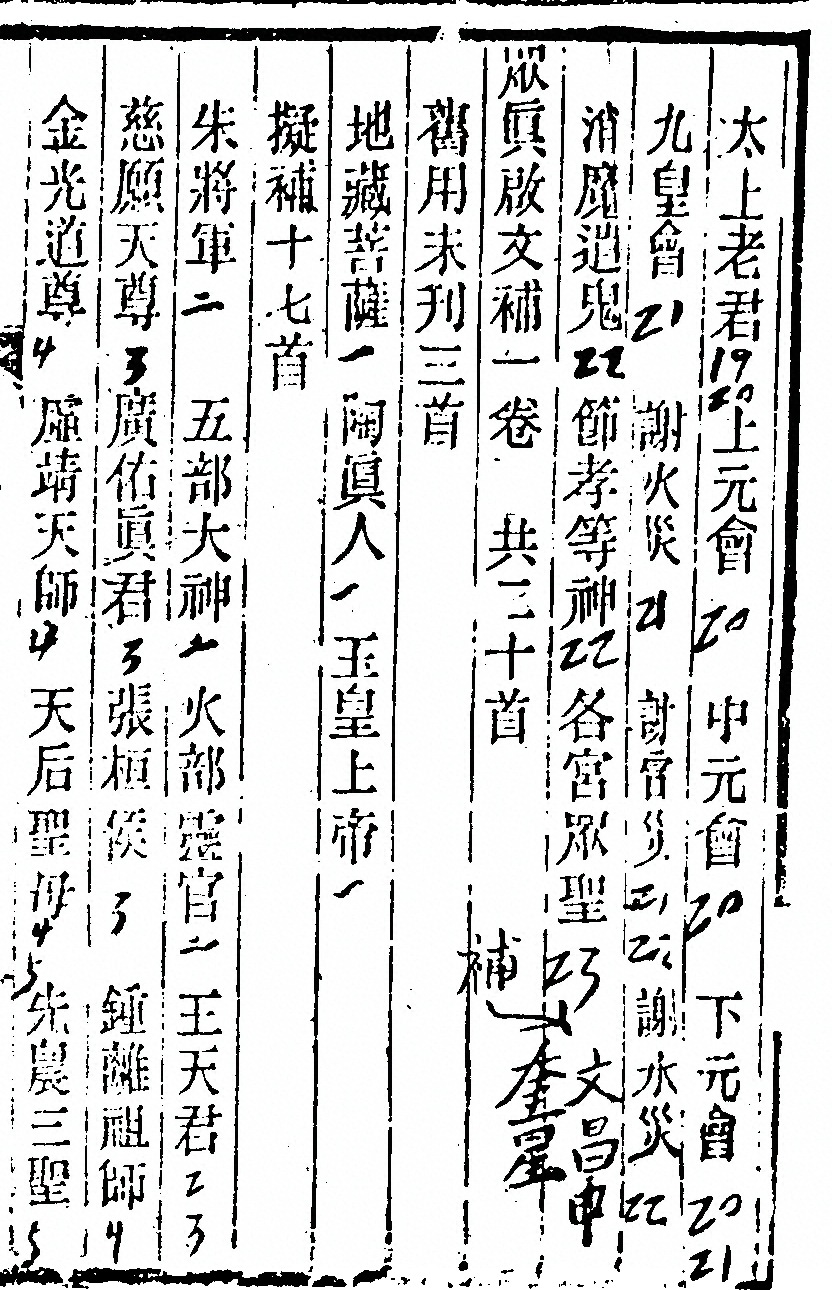 太上老君 19 20 上元會 20 中元會 20 下元會 20 21
九皇會 21 謝火災 21 謝官災 21 22 謝水災 22
消魔遣鬼 22 節孝等神 22 各宮眾聖 23 文昌申
眾眞啟文補一卷 共二十首 補 奎星
舊用未刊三首
地藏菩薩 一 陶眞人 一 玉皇上帝 一
擬補十七首
朱將軍 二 五部大神 二 火部靈官 二 王天君 2 3
慈願天尊 3 廣佑眞君 3 張桓侯 3 鍾離祖師 4
金光道尊 4 虛靖天師 4 天后聖母 4 5 先農三聖 5